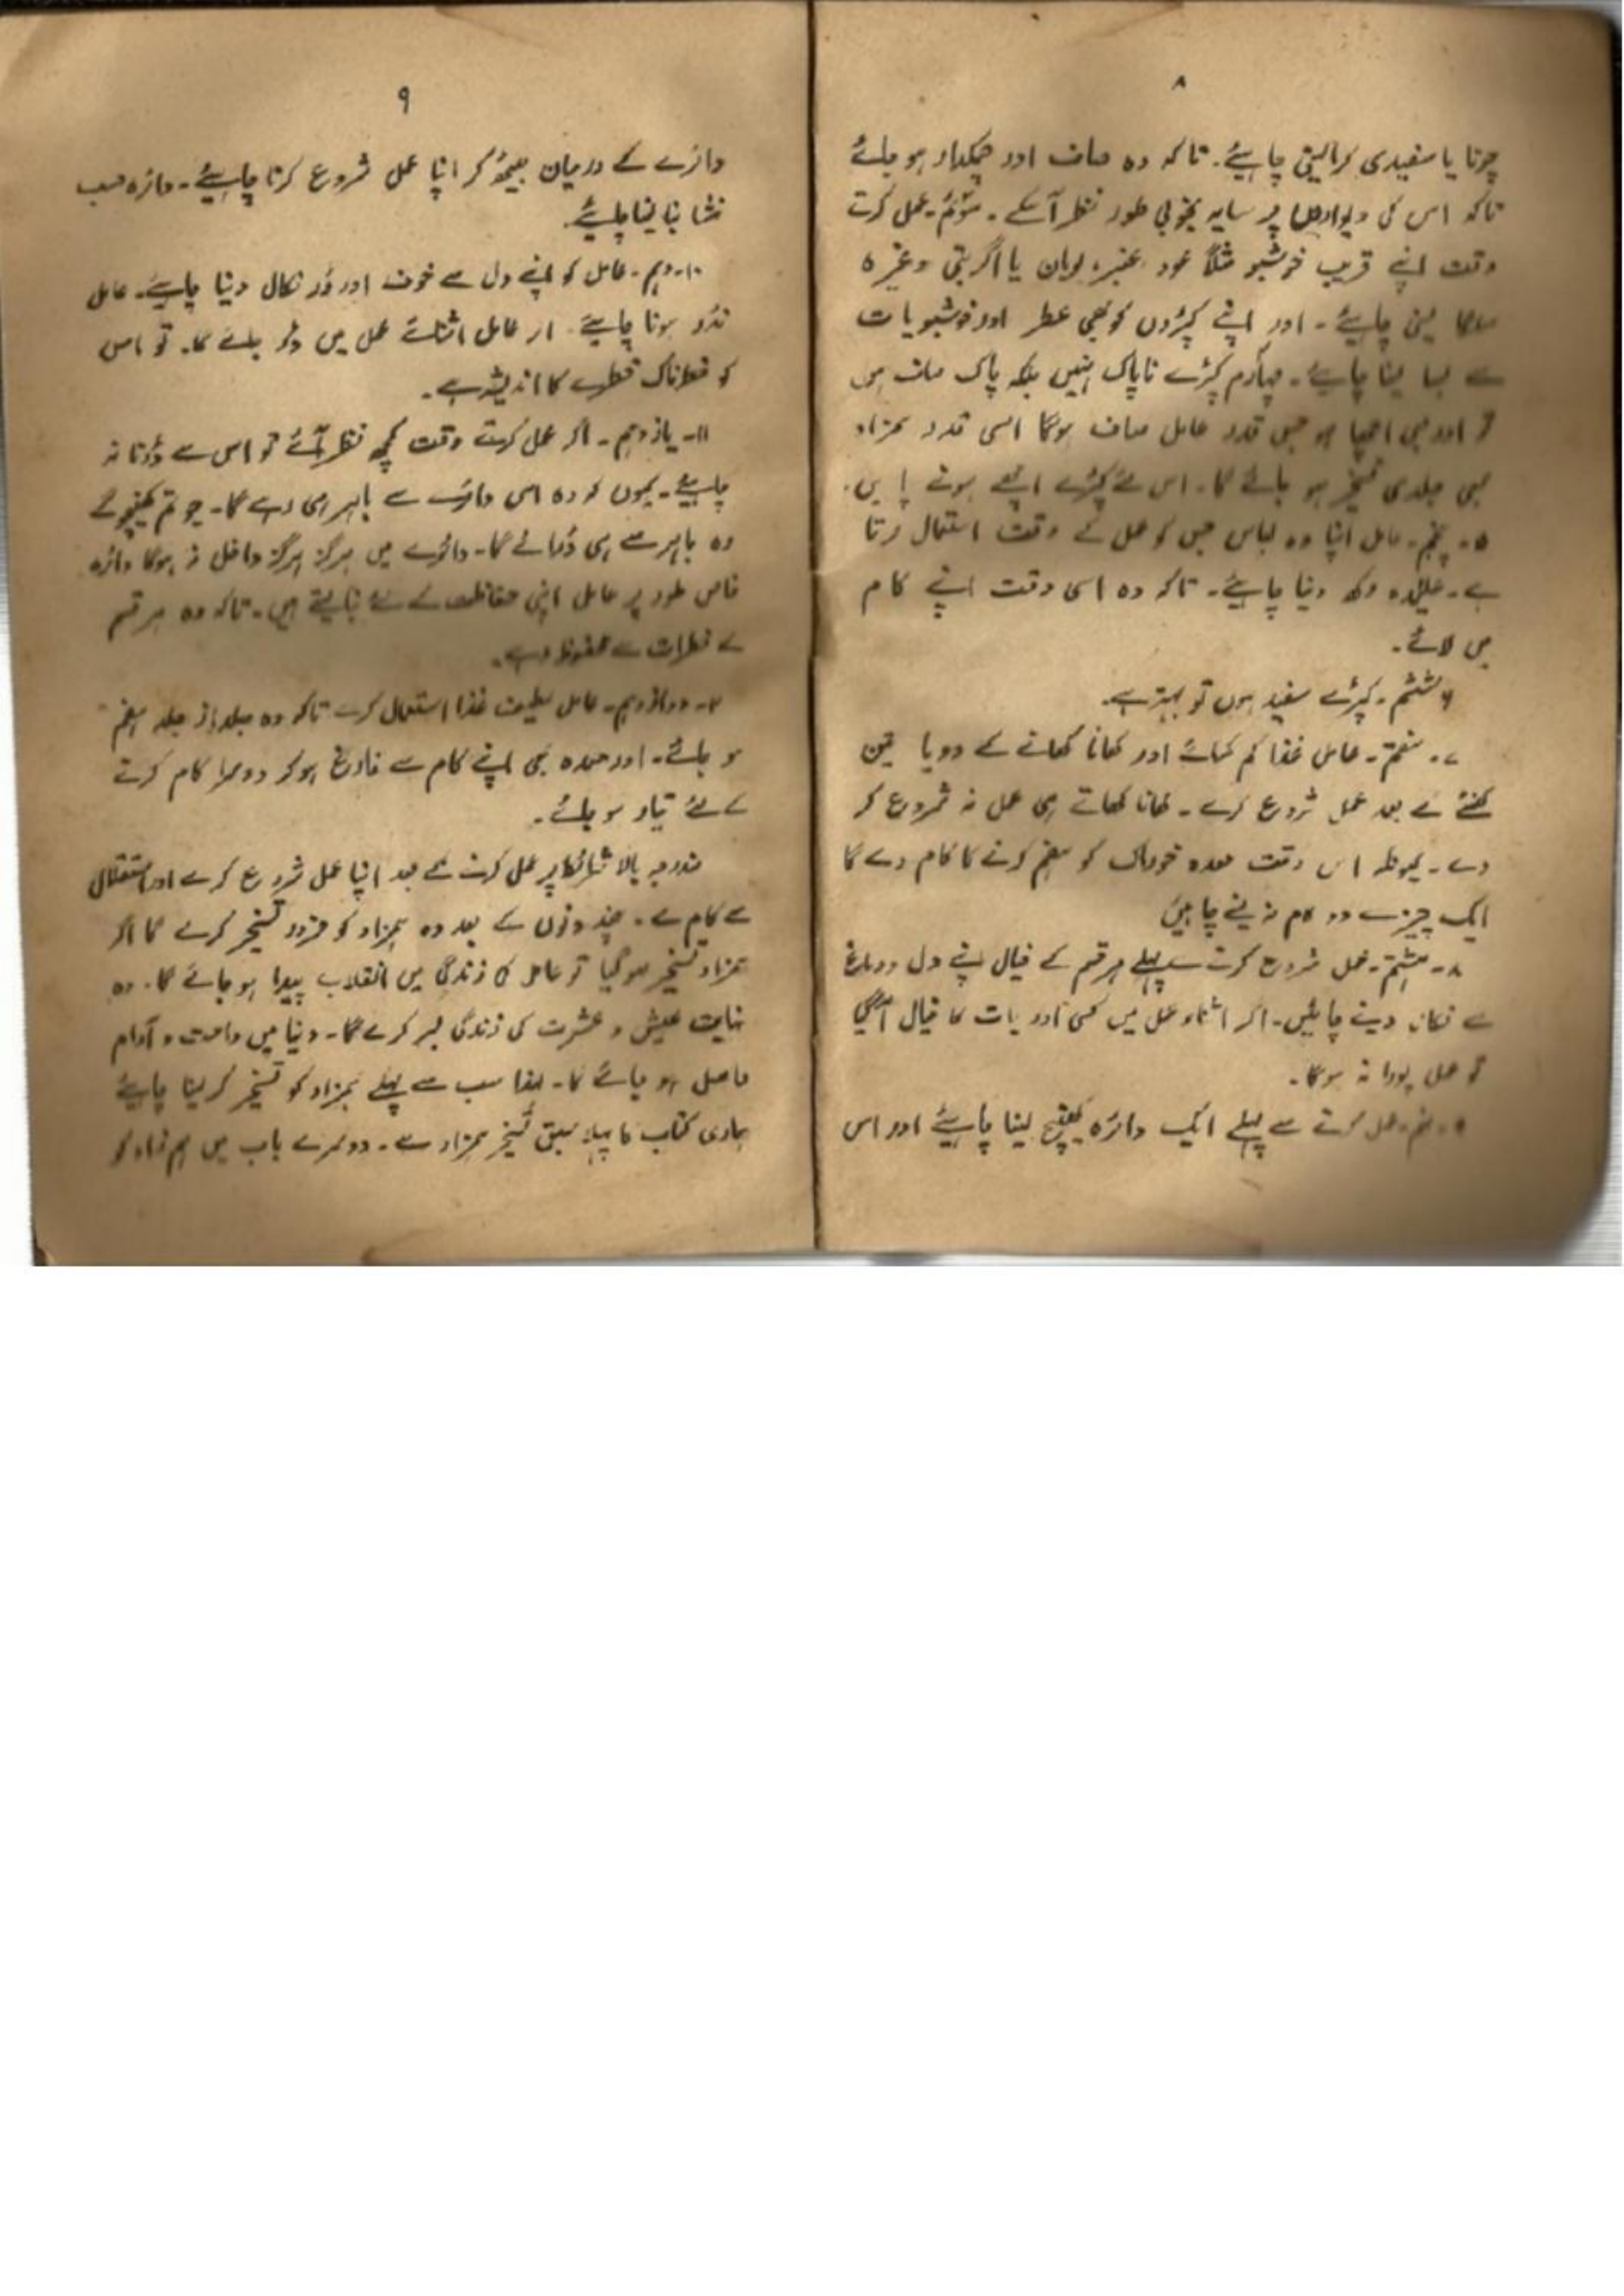 ۸
چونا یا سفیدی کرا لینی چاہیئے۔ تاکہ وہ صاف اور چمکدار ہو جائے
تاکہ اس کی دیواروں پر سایہ بخوبی طور نظر آسکے۔ سوئم۔ عمل کرتے
وقت اپنے قریب خوشبو مثلاً عود عنبر، لوبان یا اگر بتی وغیرہ
سلگا لینی چاہیئے۔ اور اپنے کپڑوں کو بھی عطر اور خوشبویات
سے بسا لینا چاہیئے۔ چہارم کپڑے ناپاک نہیں بلکہ پاک صاف ہوں
تو اور بھی اچھا ہو جس قدر عامل صاف ہوگا اسی قدر ہمزاد
بھی جلدی تسخیر ہو جائے گا۔ اس لئے کپڑے اچھے ہونے
۵۔ پنجم۔ عامل اپنا وہ لباس جس کو عمل کے وقت استعمال کرتا
ہے۔ علیٰحدہ رکھ دینا چاہیئے۔ تاکہ وہ اسی وقت اپنے کام
میں لائے۔
۶ ششم۔ کپڑے سفید ہوں تو بہتر ہے۔
۷۔ ہفتم۔ عامل غذا کم کھائے اور کھانا کھانے کے دو یا تین
گھنٹے کے بعد عمل شروع کرے۔ کھانا کھاتے ہی عمل نہ شروع کر
دے۔ کیونکہ اس وقت معدہ خوراک کو ہضم کرنے کا کام دے گا
ایک چیز سے دو کام نہ لینے چاہیں
۸۔ ہشتم۔ عمل شروع کرنے سے پہلے ہر قسم کے خیال اپنے دل و دماغ
سے نکال دینے چاہئیں۔ اگر اثناء عمل میں کسی اور بات کا خیال آگیا
تو عمل پورا نہ ہوگا۔
۹۔ نہم۔ عمل کرنے سے پہلے ایک دائرہ کھینچ لینا چاہیئے اور اس
۹
دائرے کے درمیان بیٹھ کر اپنا عمل شروع کرنا چاہیئے۔ دائرہ حسب
منشا بنا لینا چاہیئے
۱۰۔ دہم۔ عامل کو اپنے دل سے خوف اور ڈر نکال دینا چاہیئے۔ عامل
نڈر ہونا چاہیئے۔ اگر عامل اثنائے عمل میں ڈر جائے گا۔ تو اس
کو خطرناک خطرے کا اندیشہ ہے۔
۱۱۔ یازدہم۔ اگر عمل کرتے وقت کچھ نظر آئے تو اس سے ڈرنا نہ
چاہیئے۔ کیوں کہ وہ اس دائرے سے باہر ہی رہے گا۔ جو تم کھینچو گے
وہ باہر سے ہی ڈرائے گا۔ دائرے میں ہرگز ہرگز داخل نہ ہوگا دائرہ
خاص طور پر عامل اپنی حفاظت کے لئے بنا لیتے ہیں۔ تاکہ وہ ہر قسم
کے خطرات سے محفوظ رہے۔
۱۲۔ دوازدہم۔ عامل لطیف غذا استعمال کرے تاکہ وہ جلد از جلد ہضم
ہو جائے۔ اور معدہ بھی اپنے کام سے فارغ ہو کر دوسرا کام کرنے
کے لئے تیار ہو جائے۔
مندرجہ بالا شرائط پر عمل کرنے کے بعد اپنا عمل شروع کرے اور استقلال
سے کام لے۔ چند روزوں کے بعد وہ ہمزاد کو ضرور تسخیر کرے گا اگر
ہمزاد تسخیر ہو گیا تو عامل کی زندگی میں انقلاب پیدا ہو جائے گا۔ وہ
نہایت عیش و عشرت کی زندگی بسر کرے گا۔ دنیا میں راحت و آرام
حاصل ہو جائے گا۔ لہذا سب سے پہلے ہمزاد کو تسخیر کر لینا چاہیئے
ہماری کتاب کا پہلا سبق تسخیر ہمزاد ہے۔ دوسرے باب میں ہم